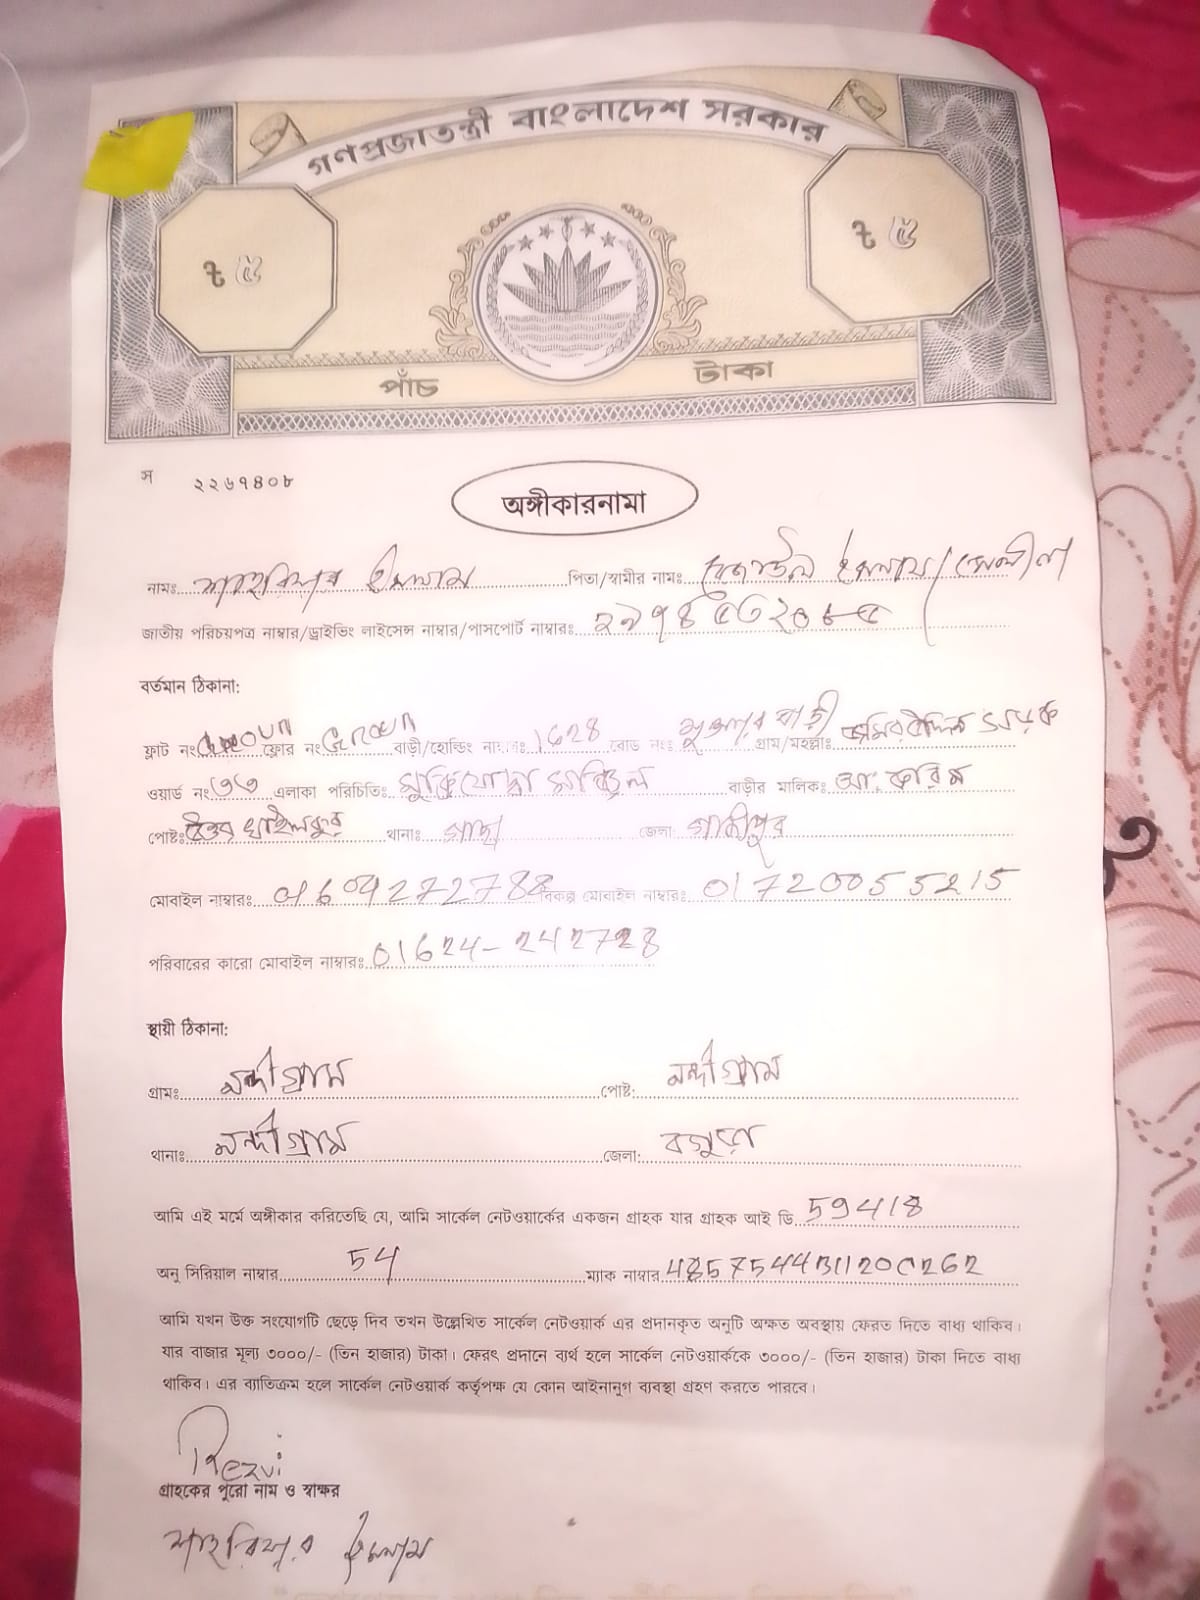 গণপ্রজাতন্ত্রী বাংলাদেশ সরকার
৳ ৫
৳ ৫
পাঁচ টাকা
স ২২৬৭৪০৮
অঙ্গীকারনামা
নামঃ শাহরিয়ার ইসলাম পিতা/স্বামীর নামঃ ইসলাম
জাতীয় পরিচয়পত্র নাম্বার/ড্রাইভিং লাইসেন্স নাম্বার/পাসপোর্ট নাম্বারঃ
বর্তমান ঠিকানা:
ফ্লাট নং Groun ফ্লোর নং Groun বাড়ী/হোল্ডিং নাম্বারঃ রোড নংঃ গ্রাম/মহল্লাঃ
ওয়ার্ড নং ৩৩ এলাকা পরিচিতিঃ মুক্তিযোদ্ধা বাড়ীর মালিকঃ আঃ করিম
পোষ্টঃ থানাঃ গাছা জেলা: গাজীপুর
মোবাইল নাম্বারঃ বিকল্প মোবাইল নাম্বারঃ 01720055215
পরিবারের কারো মোবাইল নাম্বারঃ 01624-242728
স্থায়ী ঠিকানা:
গ্রামঃ নন্দীগ্রাম পোষ্ট: নন্দীগ্রাম
থানাঃ নন্দীগ্রাম জেলা: বগুড়া
আমি এই মর্মে অঙ্গীকার করিতেছি যে, আমি সার্কেল নেটওয়ার্কের একজন গ্রাহক যার গ্রাহক আই ডি 59418
অনু সিরিয়াল নাম্বার 54 ম্যাক নাম্বার
আমি যখন উক্ত সংযোগটি ছেড়ে দিব তখন উল্লেখিত সার্কেল নেটওয়ার্ক এর প্রদানকৃত অনুটি অক্ষত অবস্থায় ফেরত দিতে বাধ্য থাকিব।
যার বাজার মূল্য ৩০০০/- (তিন হাজার) টাকা। ফেরৎ প্রদানে ব্যর্থ হলে সার্কেল নেটওয়ার্ককে ৩০০০/- (তিন হাজার) টাকা দিতে বাধ্য
থাকিব। এর ব্যাতিক্রম হলে সার্কেল নেটওয়ার্ক কর্তৃপক্ষ যে কোন আইনানুগ ব্যবস্থা গ্রহণ করতে পারবে।
Rezvi
গ্রাহকের পুরো নাম ও স্বাক্ষর
শাহরিয়ার ইসলাম